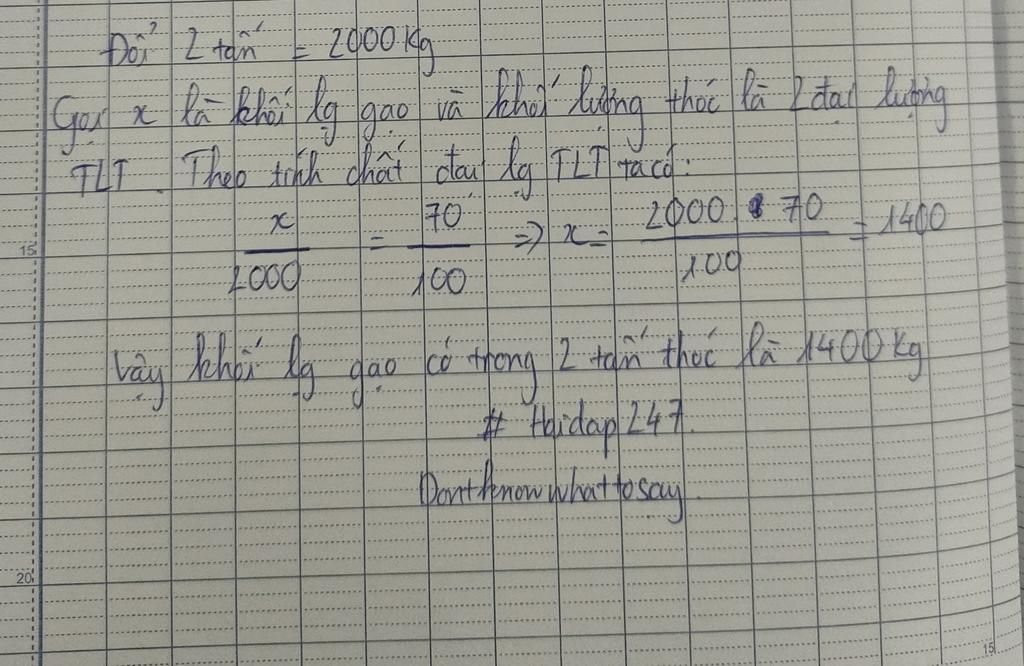 Đổi 2 tấn = 2000 kg
Gọi x là khối lg gạo và khối lượng thóc là 2 đại lượng
TLT. Theo tính chất đại lg TLT ta có:
x/2000 = 70/100 => x = 2000 . 70/100 = 1400
Vậy khối lg gạo có trong 2 tấn thóc là 1400 kg
# Hoidap247.
Dontknowwhattosay.
15
20
15